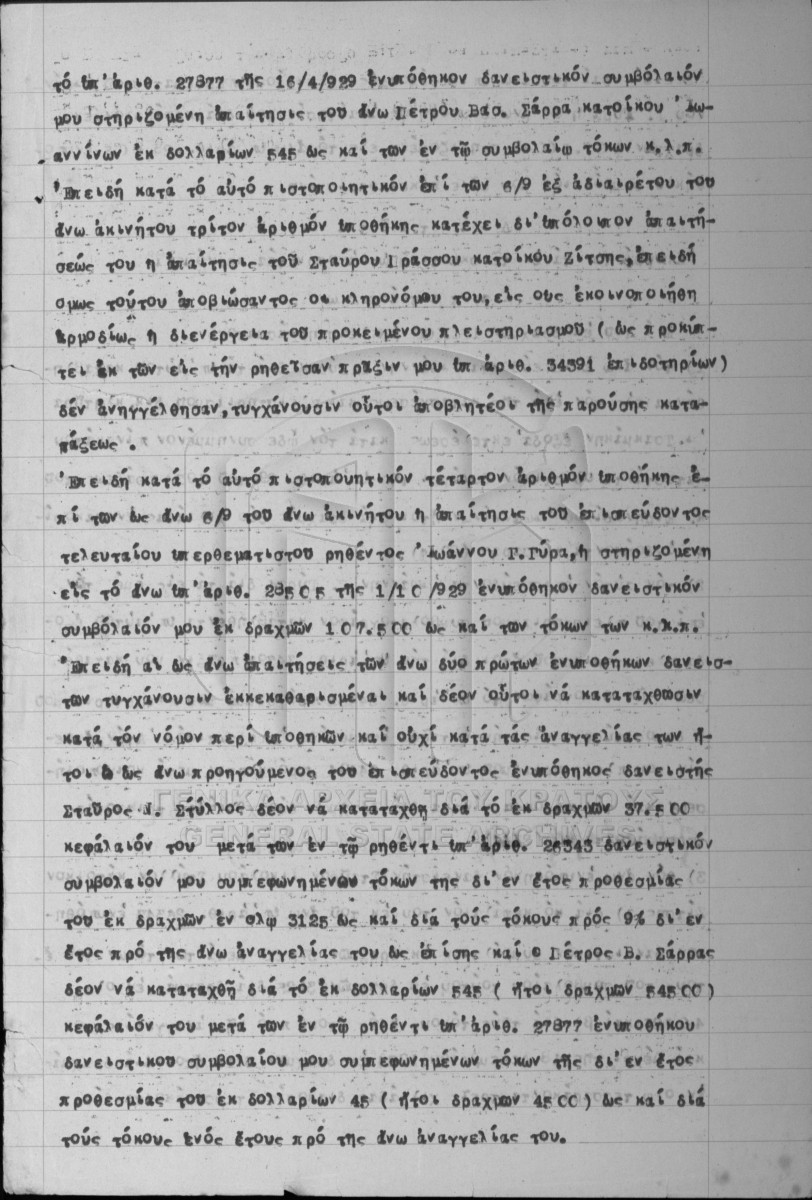 τό ὑπ' ἀριθ. 27877 τῆς 16/4/929 ἐνυπόθηκον δανειστικόν συμβόλαιόν
μου στηριζομένη ἀπαίτησις του ἄνω Πέτρου Βασ. Σάρρα κατοίκου Ἰω-
αννίνων ἐκ δολλαρίων 545 ὡς καί των ἐν τῷ συμβολαίῳ τόκων κ.λ.π.
Ἐπειδή κατά τό αὐτό πιστοποιητικόν ἐπί των 6/9 ἐξ ἀδιαιρέτου του
ἄνω ἀκινήτου τρίτον ἀριθμόν ὑποθήκης κατέχει δι' ὑπόλοιπον ἀπαιτή-
σεώς του η ἀπαίτησις τοῦ Σταύρου Γράσσου κατοίκου Ζίτσης, ἐπειδή
ομως τούτου ἀποβιώσαντος οι κληρονόμοι του, εἰς ους ἐκοινοποιήθη
ἁρμοδίως ἡ διενέργεια του προκειμένου πλειστηριασμου ( ὡς προκύπ-
τει ἐκ τῶν εἰς τήν ρηθεῖσαν πρᾶξιν μου ὑπ ἀριθ. 34391 ἐπιδοτηρίων)
δέν ἀνηγγέλθησαν, τυγχάνουσιν οὗτοι ἀποβλητέοι τῆς παρούσης κατα-
τάξεως.
Ἐπειδή κατά τό αὐτό πιστοπουητικόν τέταρτον ἀριθμόν ὑποθήκης ἐ-
πί των ὡς ἄνω 6/9 του ἄνω ἀκινήτου η ἀπαίτησις του ἐπισπεύδοντος
τελευταίου ὑπερθεματιστου ρηθέντος Ἰωάννου Γ. Γύρα, ἡ στηριζομένη
εἰς τό ἄνω ὑπ' ἀριθ. 28505 τῆς 1/10/929 ἐνυπόθηκον δανειστικόν
συμβόλαιόν μου ἐκ δραχμῶν 107.500 ὡς καί των τόκων των κ.λ.π.
Ἐπειδή αἱ ὡς ἄνω ἀπαιτήσεις τῶν ἄνω δύο πρώτων ἐνυποθήκων δανεισ-
τῶν τυγχάνουσιν ἐκκεκαθαρισμέναι καί δέον οὗτοι νά καταταχθωσιν
κατά τόν νόμον περί ὑποθηκῶν καί οὐχί κατά τάς ἀναγγελίας των ἤ-
τοι ὁ ὡς ἄνω προηγούμενος του ἐπισπεύδοντος ἐνυπόθηκος δανειστής
Σταῦρος Ν. Στύλλος δέον νά καταταχθῇ διά τό ἐκ δραχμῶν 37.500
κεφάλαιόν του μετά των ἐν τῷ ρηθέντι ὑπ' ἀριθ. 26343 δανειστικόν
συμβολαιόν μου συμπεφωνημένων τόκων της δι' εν ἔτος προθεσμίας
του ἐκ δραχμῶν ἐν ολῳ 3125 ὡς καί διά τούς τόκους πρός 9% δι' εν
ἔτος πρό της ἄνω ἀναγγελίας του ὡς ἐπίσης καί ὁ Πέτρος Β. Σάρρας
δέον νά καταταχθῇ διά τό ἐκ δολλαρίων 545 ( ἤτοι δραχμῶν 54500)
κεφάλαιόν του μετά των ἐν τῷ ρηθέντι ὑπ' ἀριθ. 27877 ἐνυποθήκου
δανειστικου συμβολαίου μου συμπεφωνημένων τόκων τῆς δι' εν ἔτος
προθεσμίας του ἐκ δολλαρίων 45 ( ἤτοι δραχμων 4500) ὡς καί διά
τούς τόκους ἑνός ἔτους πρό της ἄνω ἀναγγελίας του.
ΓΕΝΙΚΑ ΑΡΧΕΙΑ ΤΟΥ ΚΡΑΤΟΥΣ
GENERAL STATE ARCHIVES